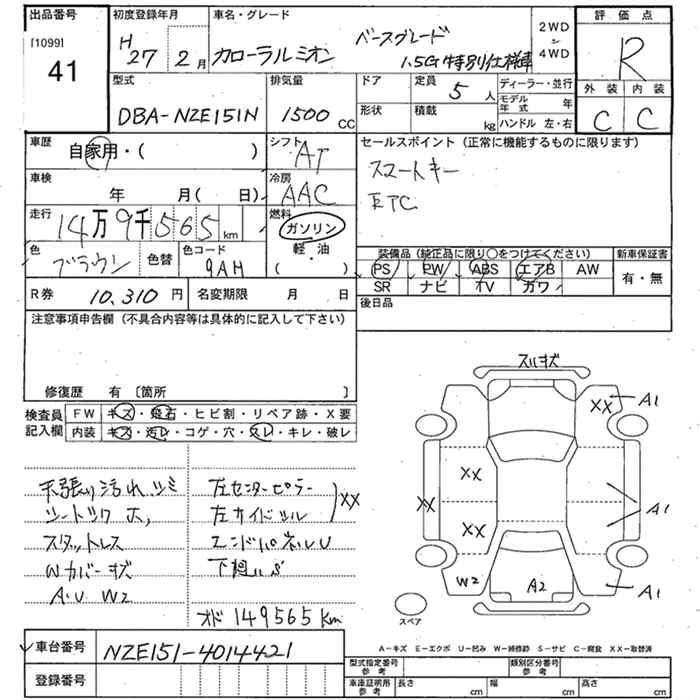 出品番号
[1099]
41
初度登録年月
H
27 2月
車名・グレード
カローラルミオン
ベースグレード
1.5G 特別仕様車
2WD
~
4WD
評価点
R
外装 内装
C C
型式
DBA-NZE151N
排気量
1500 CC
ドア
定員
5 人
ディーラー・並行
形状
積載
kg
モデル年式 年
ハンドル 左・右
車歴
自家用・( )
シフト
AT
セールスポイント (正常に機能するものに限ります)
スマートキー
ETC
車検
年 月( 日)
冷房
AAC
走行
14万9千565km
燃料
ガソリン
軽・油
( )
色
ブラウン
色替
色コード
9AH
装備品 (純正品に限り○をつけてください)
PS PW ABS エアB AW
SR ナビ TV ガワ
新車保証書
有・無
R券 10,310円
名変期限 月 日
後日品
注意事項申告欄 (不具合内容等は具体的に記入して下さい)
修復歴 有 〔箇所 〕
検査員
記入欄
FW ・キズ・飛石・ヒビ割・リペア跡・X要
内装 ・キズ・汚レ・コゲ・穴・スレ・キレ・破レ
天張り汚れ シミ
シートツク ホ
スタットレス
Wカバーキズ
A.U W2
左センターピラー
左サイドシル
XX
エンドパネルU
オド 149565 Km
スリキズ
XX A1
XX
XX
XX
A1
W2
A2
A1
スペア
A-キズ E-エクボ U-凹み W-補修跡 S-サビ C-腐食 XX-取替済
車台番号
NZE151-4014421
登録番号
型式指定番号
参考
類別区分番号
参考
車庫証明用
参考
長さ cm 幅 cm 高さ cm